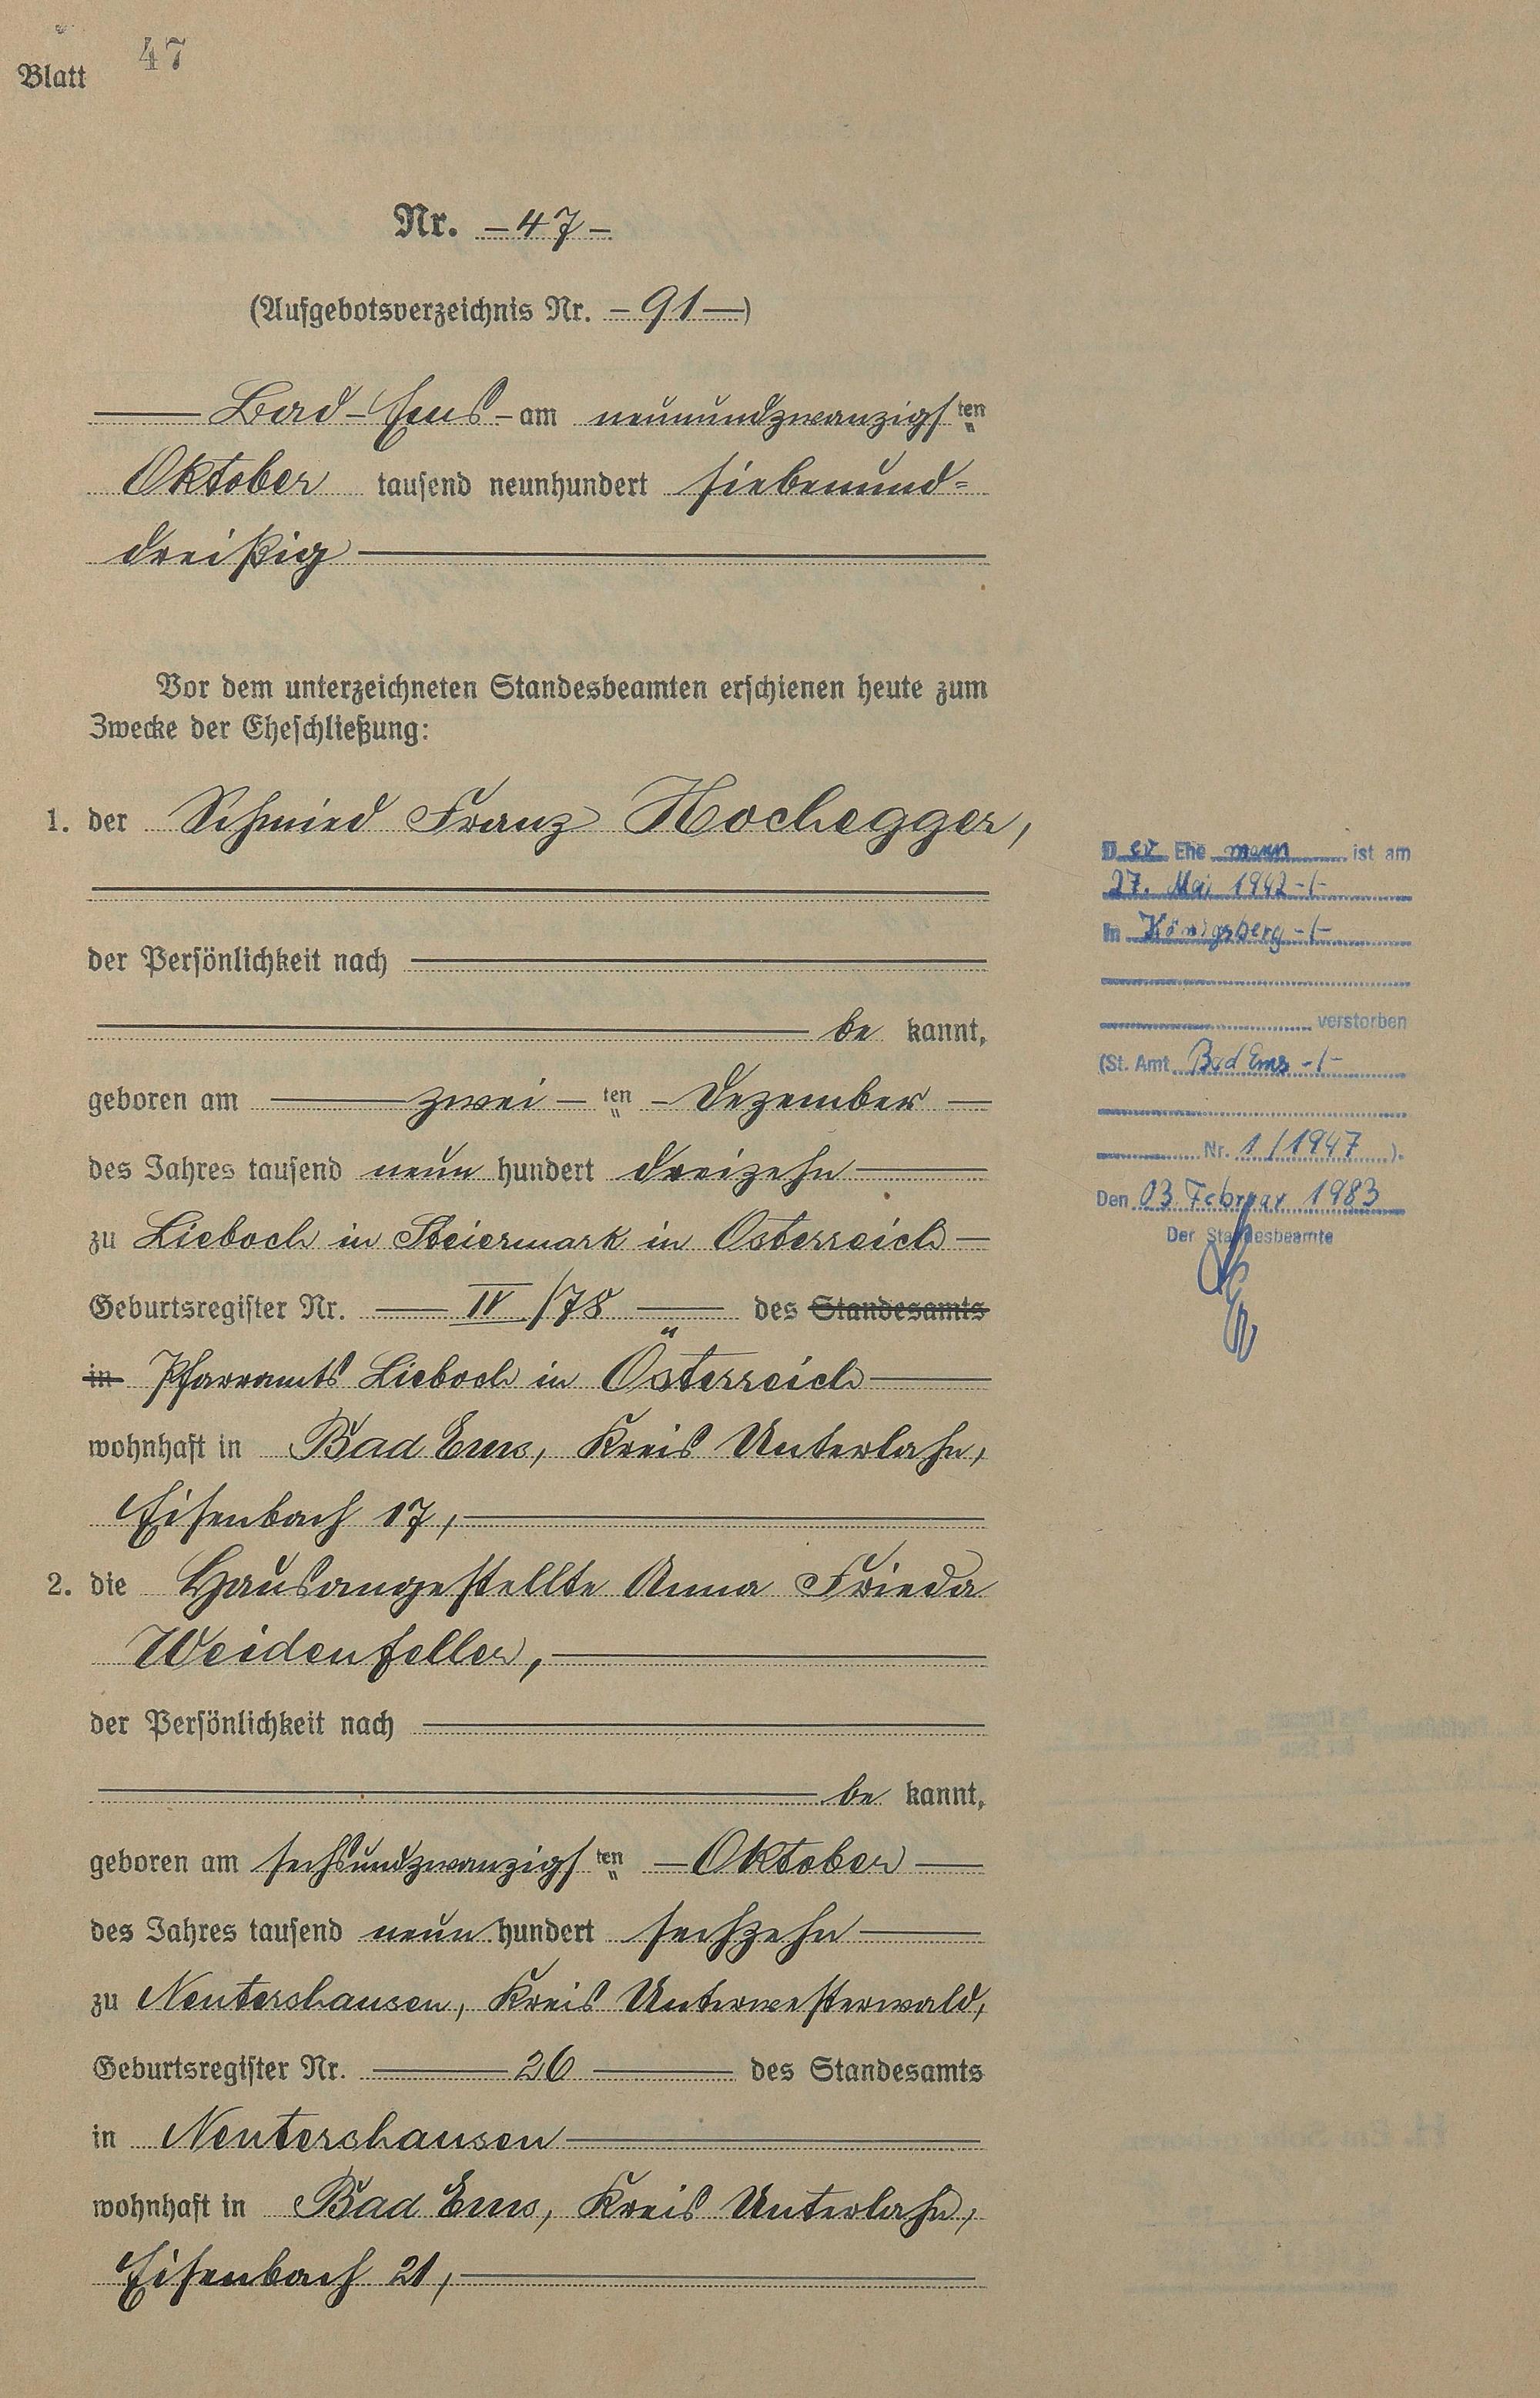 Blatt 47
Nr. – 47 –
(Aufgebotsverzeichnis Nr. – 91 –)
Bad-Ems – am neunundzwanzigsten
Oktober tausend neunhundert siebenund=
dreißig
Vor dem unterzeichneten Standesbeamten erschienen heute zum
Zwecke der Eheschließung:
1. der Schmied Franz Hochegger,
der Persönlichkeit nach
be kannt,
geboren am zwei – ten – Dezember –
des Jahres tausend neun hundert dreizehn
zu Lieboch in Steiermark in Osterreich –
Geburtsregister Nr. IV/78 des Standesamts
in Pfarramts Lieboch in Österreich
wohnhaft in Bad Ems, Kreis Unterlahn,
Eisenbach 17,
2. die Hausangestellte Anna Frieda
Weidenfeller,
der Persönlichkeit nach
be kannt,
geboren am sechsundzwanzigsten – Oktober –
des Jahres tausend neun hundert sechzehn
zu Nentershausen, Kreis Unterwesterwald,
Geburtsregister Nr. 26 des Standesamts
in Nentershausen
wohnhaft in Bad Ems, Kreis Unterlahn,
Eisenbach 21,
Der Ehemann ist am
27. Mai 1942 -/-
in Königsberg -/-
verstorben
(St. Amt Bad Ems -/-
Nr. 1/1947).
Den 03. Februar 1983
Der Standesbeamte